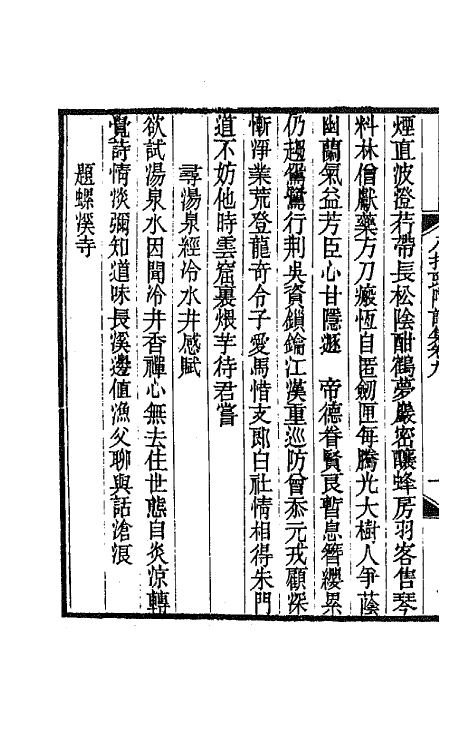 煙直波澄若帶長松陰酣鶴夢巖密釀蜂房羽客售琴
料林僧獻藥方刀瘢恆自匿劒匣每騰光大樹人爭蔭
幽蘭氣益芳臣心甘隱遯　帝德眷賢良暫息簪纓累
仍趨鵷鷺行荆吳資鎖鑰江漢重巡防曾忝元戎顧深
慚淨業荒登龍奇令子愛馬惜支郎白社情相得朱門
道不妨他時雲窟裏煨芋待君嘗
尋湯泉經冷水井感賦
欲試湯泉水因聞冷井香禪心無去住世態自炎涼轉
覺詩情淡彌知道味長溪邊值漁父聊與話滄浪
題螺溪寺